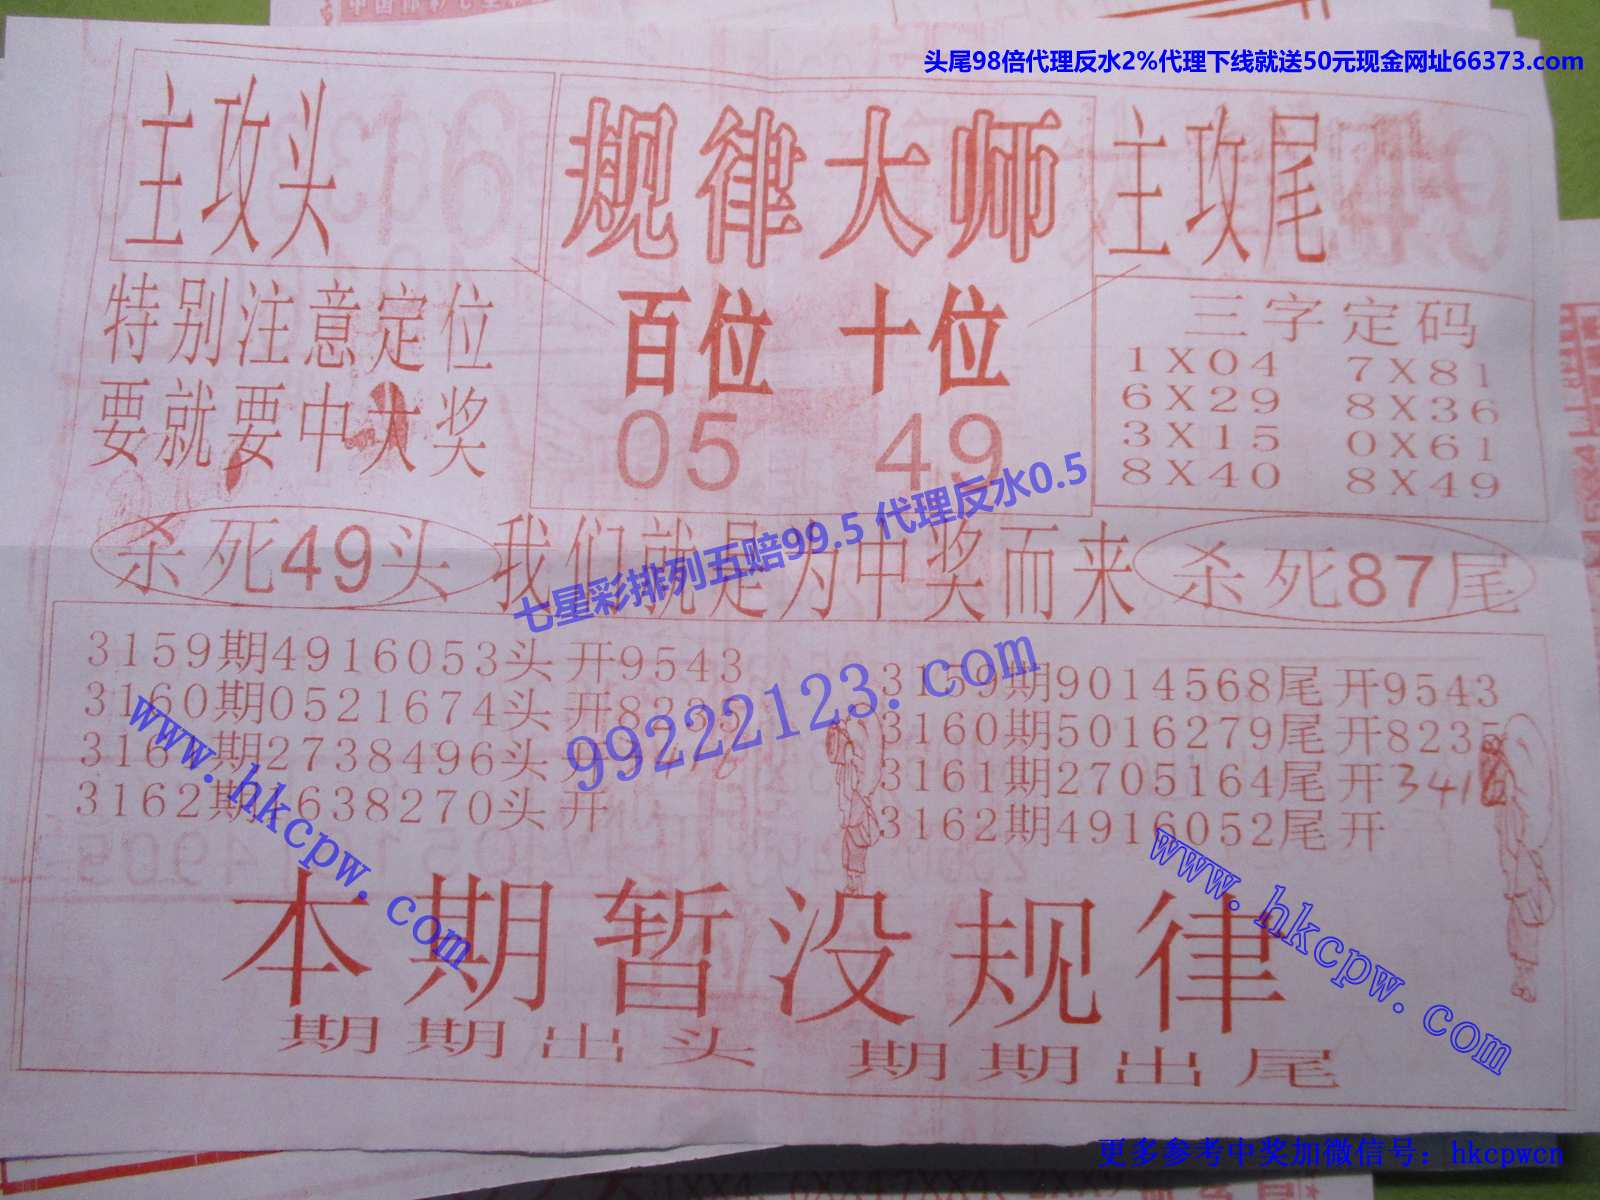 头尾98倍代理反水2%代理下线就送50元现金网址66373.com
主攻头
规律大师
主攻尾
特别注意定位
要就要中大奖
百位 十位
05 49
三字定码
1X04 7X81
6X29 8X36
3X15 0X61
8X40 8X49
七星彩排列五赔99.5 代理反水0.5
杀死49头 我们就是为中奖而来 杀死87尾
99222123.com
3159期4916053头 开9543
3160期0521674头
2738496头
3162期 638270头 开
3159期9014568尾 开9543
3160期5016279尾 开8235
3161期2705164尾 开341
3162期4916052尾 开
www.hkcpw.com
www.hkcpw.com
本期暂没规律
期期出头 期期出尾
更多参考中奖加微信号：hkcpwcn